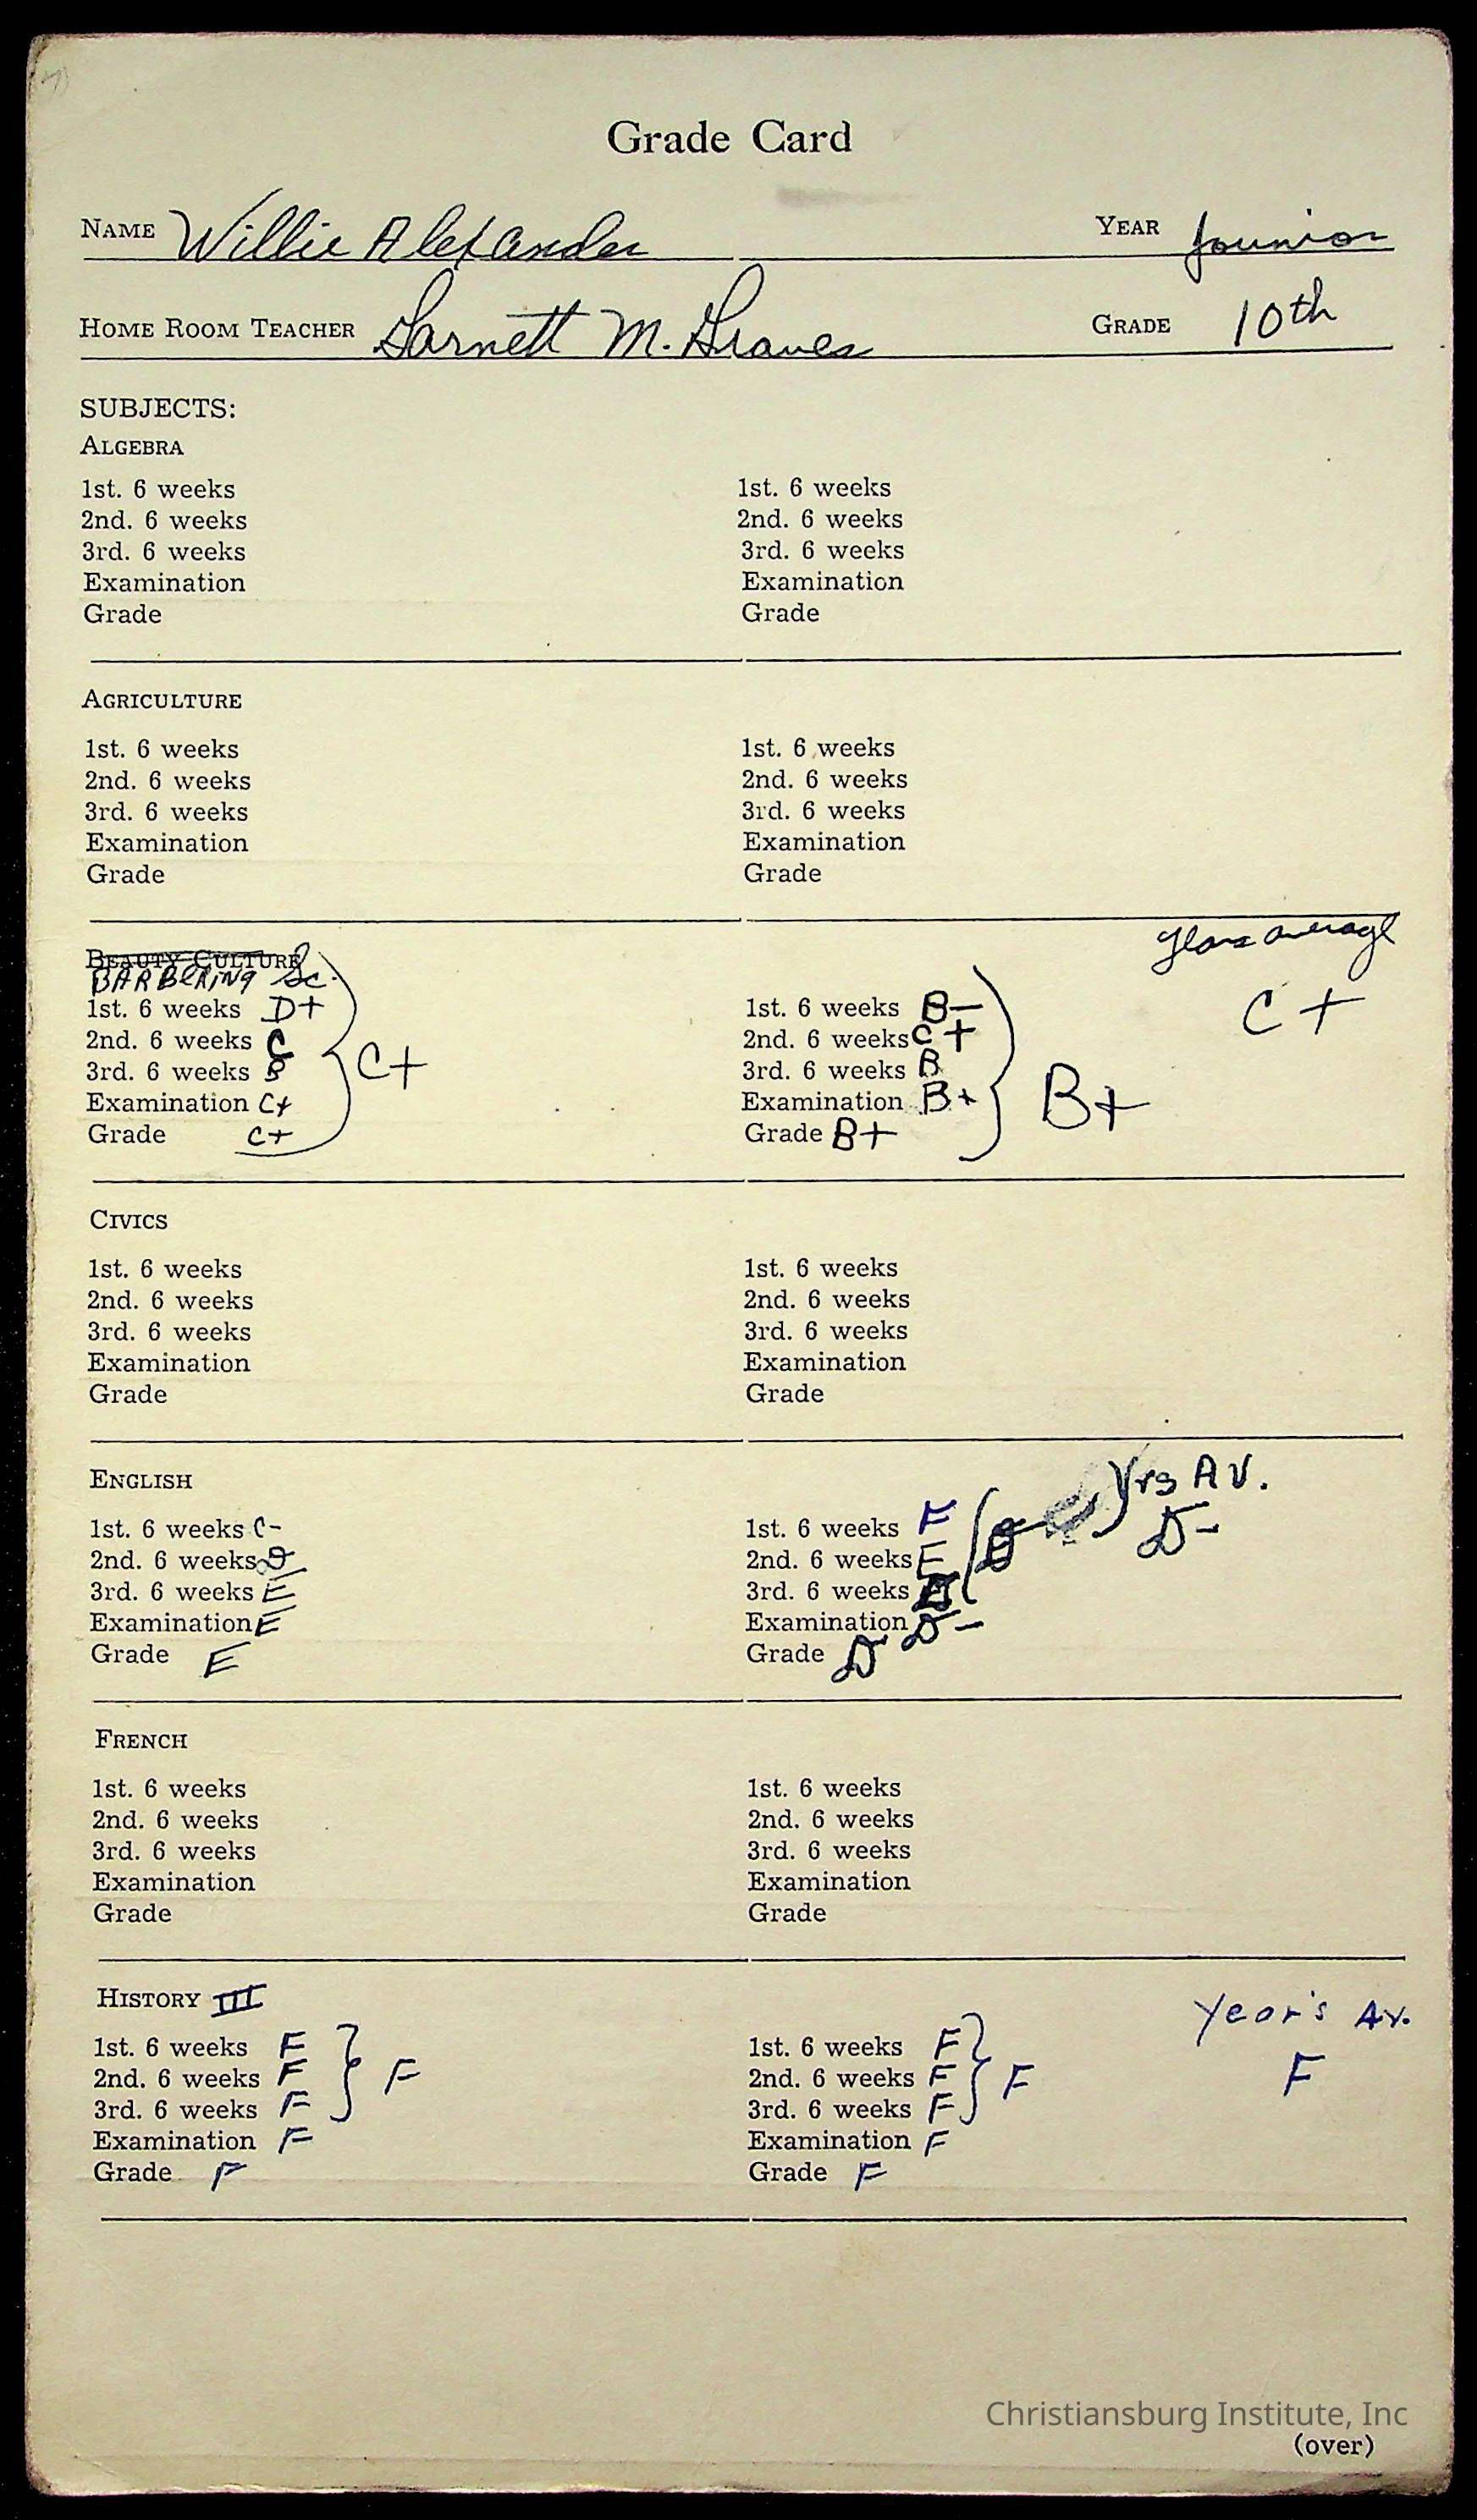 Grade Card
NAME Willie Alexander YEAR Jounior
HOME ROOM TEACHER Garnett M. Graves GRADE 10th
SUBJECTS:
ALGEBRA
1st. 6 weeks 1st. 6 weeks
2nd. 6 weeks 2nd. 6 weeks
3rd. 6 weeks 3rd. 6 weeks
Examination Examination
Grade Grade
AGRICULTURE
1st. 6 weeks 1st. 6 weeks
2nd. 6 weeks 2nd. 6 weeks
3rd. 6 weeks 3rd. 6 weeks
Examination Examination
Grade Grade
Years average
BEAUTY CULTURE
BARBERING Sc.
1st. 6 weeks D+ 1st. 6 weeks B- C+
2nd. 6 weeks C 2nd. 6 weeks C+
3rd. 6 weeks B C+ 3rd. 6 weeks B
Examination C+ Examination B+ B+
Grade C+ Grade B+
CIVICS
1st. 6 weeks 1st. 6 weeks
2nd. 6 weeks 2nd. 6 weeks
3rd. 6 weeks 3rd. 6 weeks
Examination Examination
Grade Grade
ENGLISH Yrs AV.
1st. 6 weeks C- 1st. 6 weeks F D-
2nd. 6 weeks D 2nd. 6 weeks E
3rd. 6 weeks E 3rd. 6 weeks
Examination E Examination D-
Grade E Grade D
FRENCH
1st. 6 weeks 1st. 6 weeks
2nd. 6 weeks 2nd. 6 weeks
3rd. 6 weeks 3rd. 6 weeks
Examination Examination
Grade Grade
HISTORY III Year's Av.
1st. 6 weeks F 1st. 6 weeks F
2nd. 6 weeks F F 2nd. 6 weeks F F F
3rd. 6 weeks F 3rd. 6 weeks F
Examination F Examination F
Grade F Grade F
Christiansburg Institute, Inc
(over)